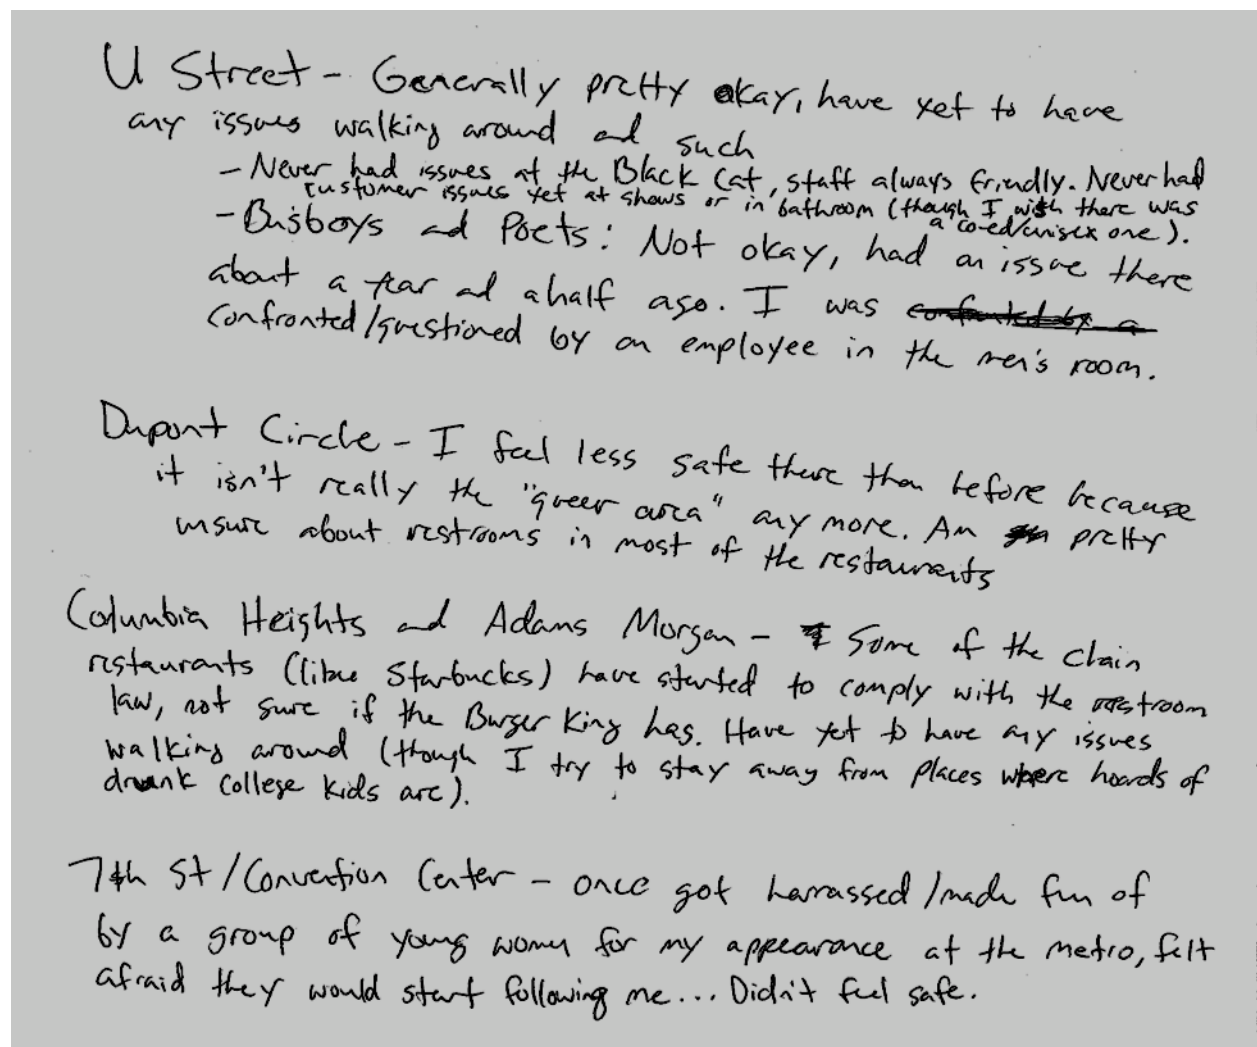 U Street - Generally pretty okay, have yet to have
any issues walking around and such
- Never had issues at the Black Cat, staff always friendly. Never had
customer issues yet at shows or in bathroom (though I wish there was
a co-ed/unisex one).
- Busboys and Poets: Not okay, had an issue there
about a year and a half ago. I was confronted by a
confronted/questioned by an employee in the men's room.
Dupont Circle - I feel less safe there than before because
it isn't really the "queer area" any more. Am pretty
unsure about restrooms in most of the restaurants
Columbia Heights and Adams Morgan - Some of the chain
restaurants (like Starbucks) have started to comply with the restroom
law, not sure if the Burger King has. Have yet to have any issues
walking around (though I try to stay away from places where hoards of
drunk college kids are).
7th St/Convention Center - once got harrassed/made fun of
by a group of young women for my appearance at the metro, felt
afraid they would start following me... Didn't feel safe.